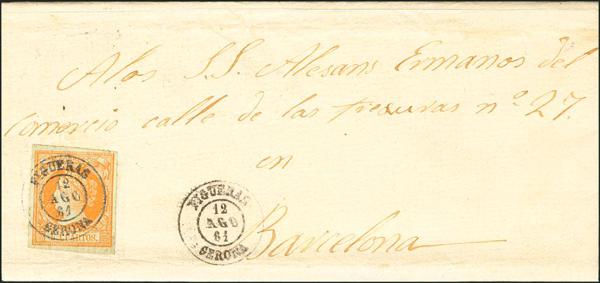 Alos S.S. Alesans Ermanos del
comercio calle de las fresuras nº 27.
en
Barcelona
FIGUERAS
12
AGO
61
GERONA
FIGUERAS
12
AGO
61
GERONA